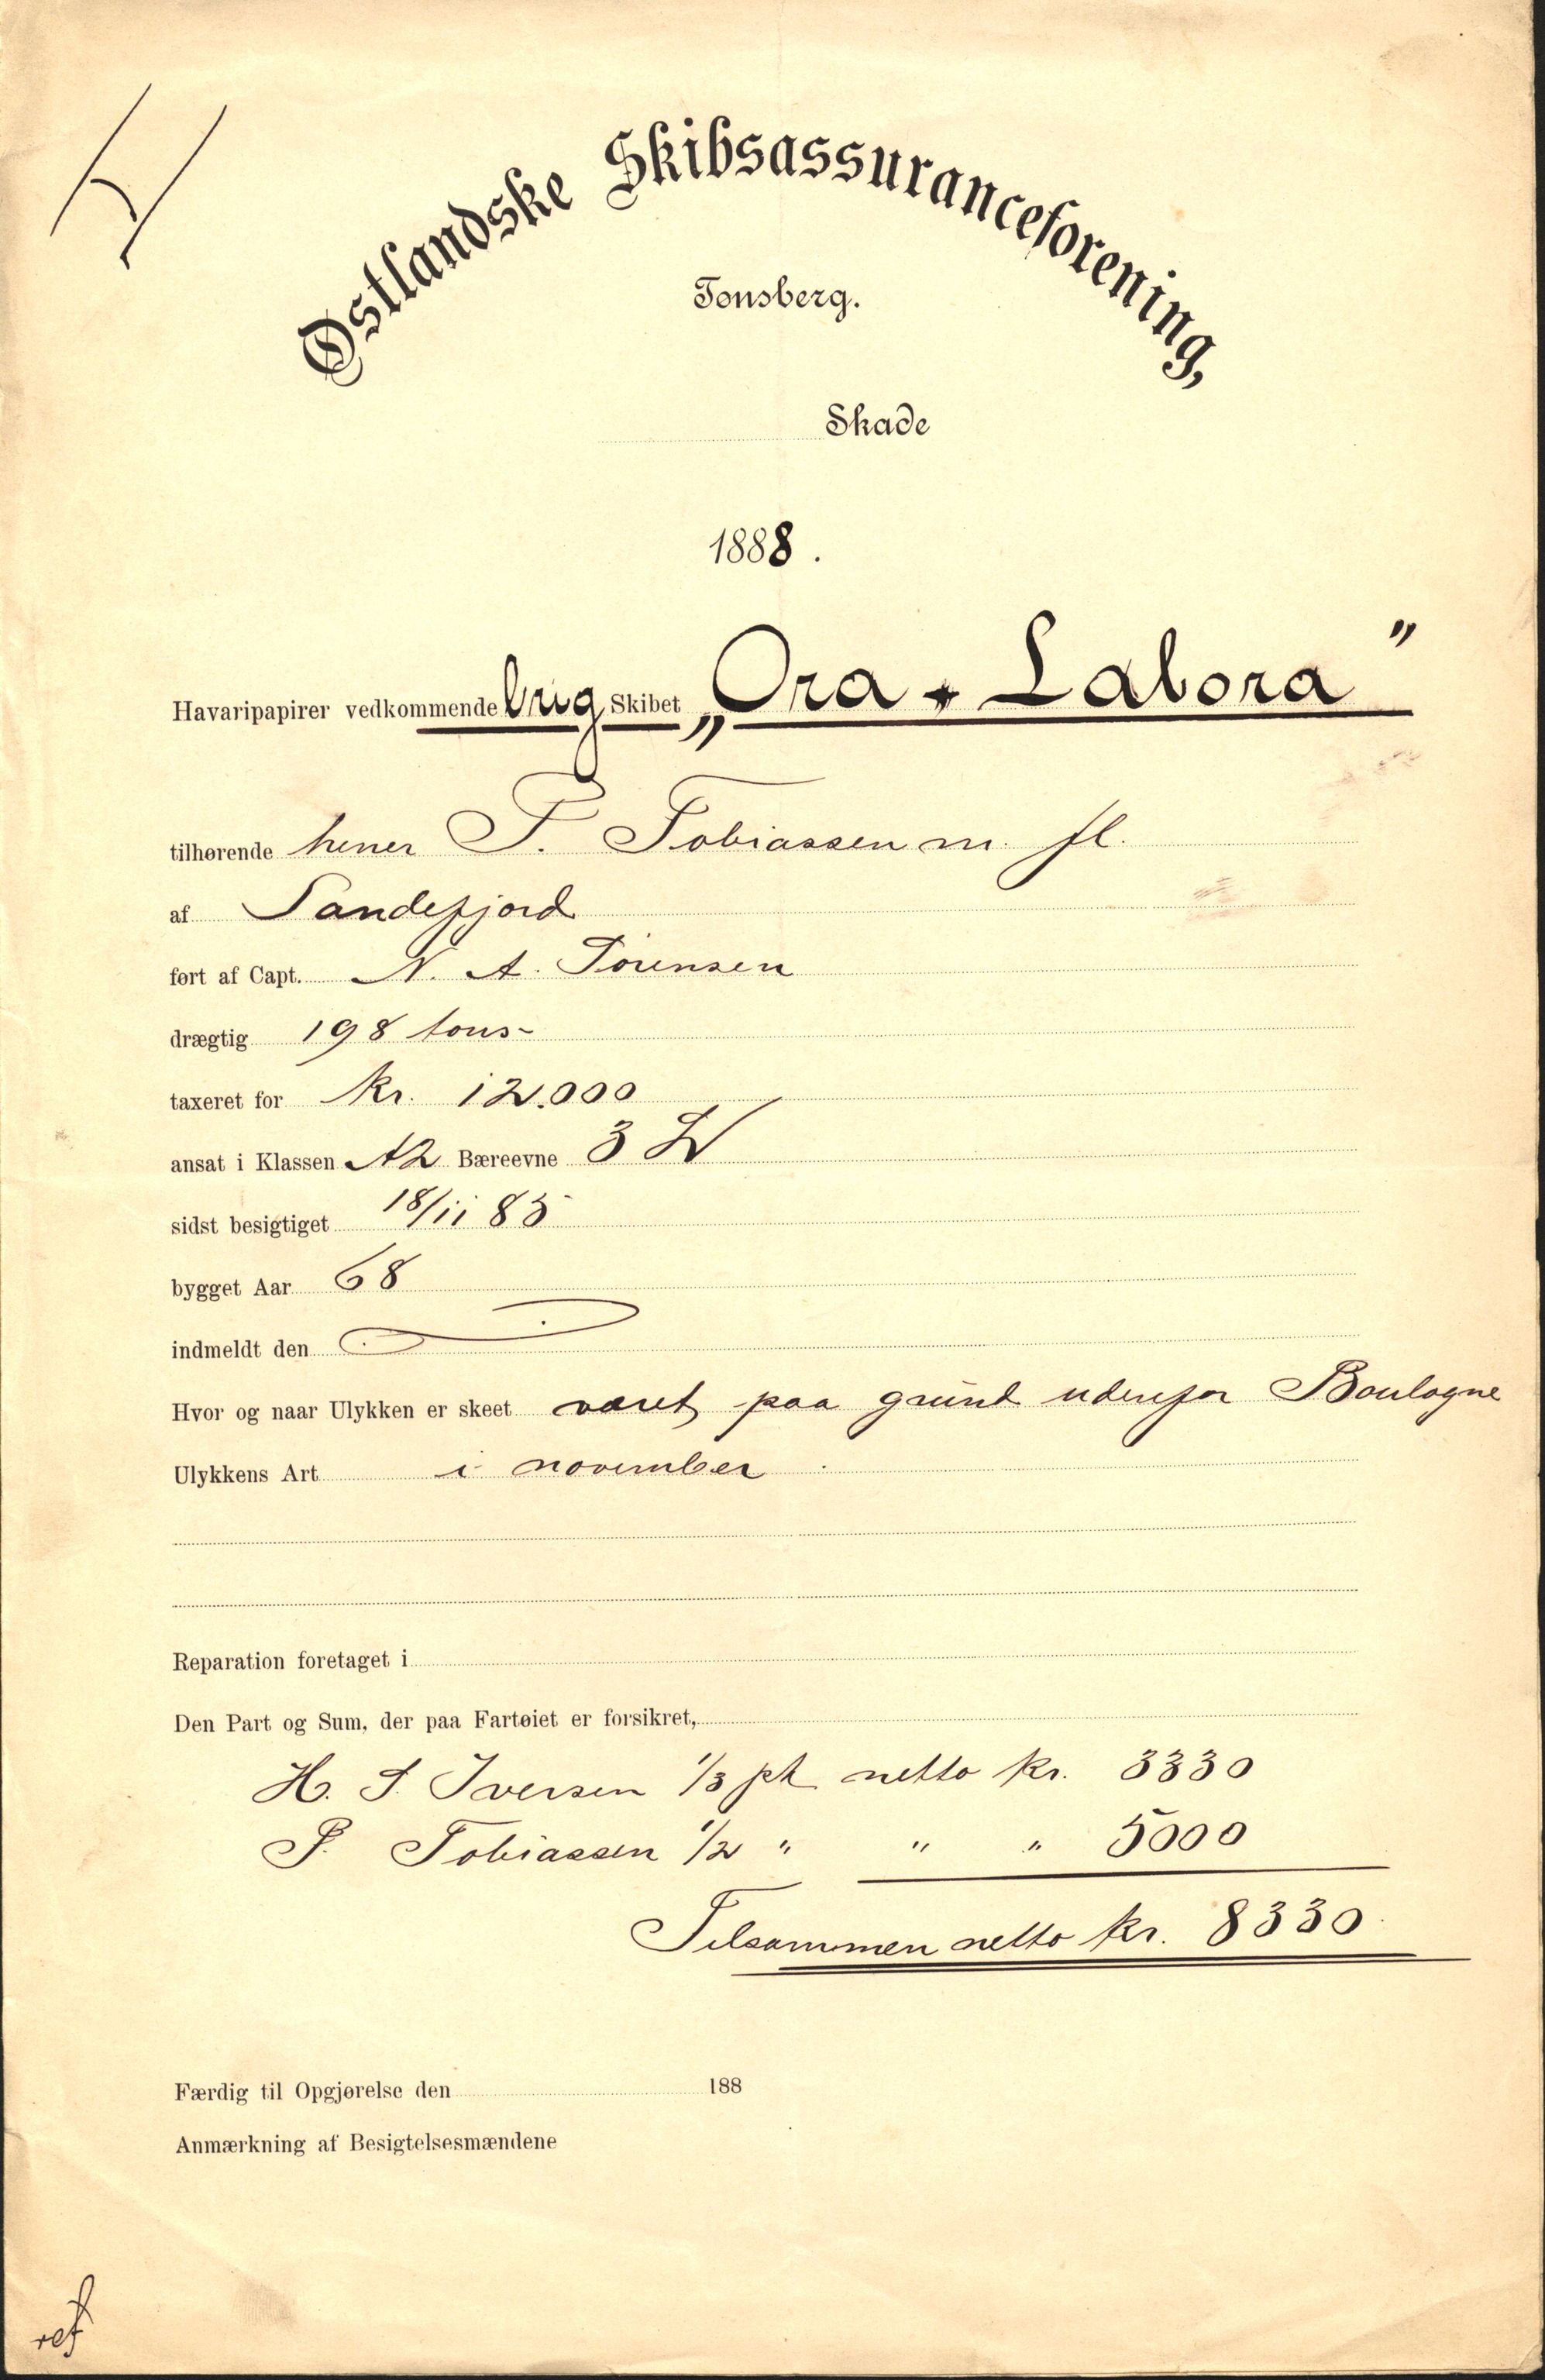 H
Østlandske Skibsassuranceforening,
Tønsberg.
Skade
1888.
Havaripapirer vedkommende brig Skibet „Ora + Labora"
tilhørende herrer T. Tobiassen m. fl.
af Sandefjord
ført af Capt. N. A. Sørensen
drægtig 198 tons-
taxeret for kr. 12.000
ansat i Klassen A2 Bæreevne 3
sidst besigtiget 18/11 85
bygget Aar 68
indmeldt den
Hvor og naar Ulykken er skeet været paa grund udenfor Boulogne
Ulykkens Art i november
Reparation foretaget i
Den Part og Sum, der paa Fartøiet er forsikret,
H. S. Iversen 1/3 pt netto kr. 3330
P. Tobiassen 1/2 " " " 5000
Tilsammen netto kr. 8330
Færdig til Opgjørelse den 188
Anmærkning af Besigtelsesmændene
ref